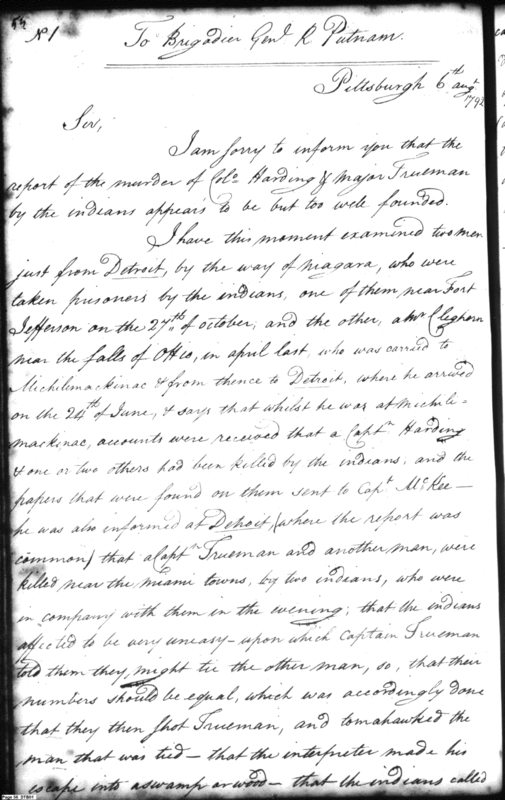 54
No 1
To Brigadier Genl. R Putnam.
Pittsburgh 6th augt
1792
Sir,
I am sorry to inform you that the
report of the murder of Colo. Harding & Major Trueman
by the indians appears to be but too well founded.
I have this moment examined two men
just from Detroit, by the way of Niagara, who were
taken prisoners by the indians, one of them near Fort
Jefferson on the 27th. of october, and the other, a Mr. Cleghorn
near the falls of Ohio, in april last, who was carried to
Michilmackinac & from thence to Detroit, where he arrived
on the 24th of June, & says that whilst he was at Michili-
mackinac, accounts were received that a Captn. Harding
& one or two others had been killed by the indians, and the
papers that were found on them sent to Capt. McKee—
he was also informed at Detroit, (where the report was
common) that a Captn. Trueman and another man, were
killed near the Miami towns, by two indians, who were
in company with them in the evening; that the indians
affected to be very uneasy— upon which Captain Trueman
told them they might tie the other man, so, that their
numbers should be equal, which was accordingly done
that they then shot Trueman, and tomahawked the
man that was tied— that the interpreter made his
escape into a swamp or wood— that the indians called